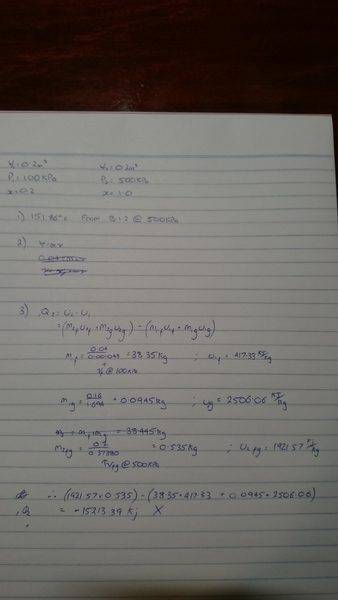 V₁ = 0.2m³ V₂ = 0.2m³
P₁ = 100kPa P₂ = 500kPa
x = 0.2 x = 1.0
1) 151.86°C From B.1.2 @ 500kPa
2)
3) ₁Q₂ = U₂ - U₁
= (m₂fu₂f + m₂gu₂g) - (m₁fu₁f + m₁gu₁g)
m₁f = 0.04/0.001043 = 38.35kg ; u₁f = 417.33 KJ/kg
↑
Vf @ 100kPa
m₁g = 0.16/1.694 = 0.0945kg ; ug = 2506.06 KJ/kg
= 38.445kg
m₂g = 0.2/0.37380 = 0.535kg ; U₂fg = 1921.57 KJ/kg
↑Vfg @ 500kPa
∴ (1921.57×0.535) - (38.35×417.33 + 0.0945×2506.06)
₁Q₂ = -15213.39 kJ X